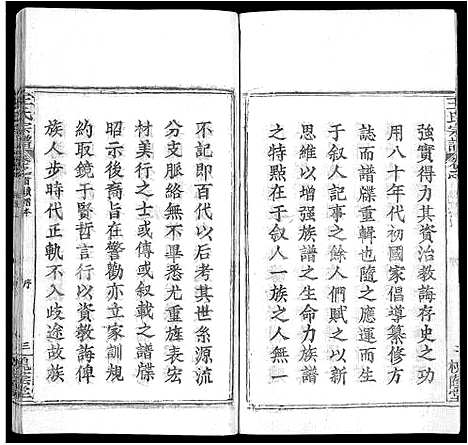 王氏宗譜
強實得力其資治教誨存史之功
用八十年代初國家倡導纂修方
誌而譜牒重輯也隨之應運而生
于叙人記事之餘人們賦予以新
思維以增强族譜之生命力族譜
之特點在于叙一族之人無一
槐蔭堂
不記即百代以后考其世系源流
分支脈絡無不畢悉尤重旌表宏
材美行之士或傳或叙載之譜牒
昭示後裔旨在警勸亦立家訓規
約取鏡于賢哲言以資教誨俾
族人步時代正軌不入歧途故族
王氏宗譜
序
三
槐蔭堂